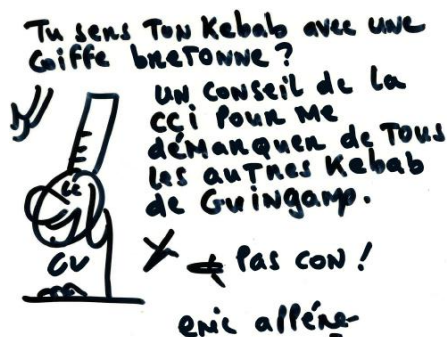 Tu sers Ton Kebab avec une
coiffe bretonne?
un conseil de la
CCi pour me
démarquer de tous
les autres Kebab
de Guingamp.
Pas con!
eric appéré